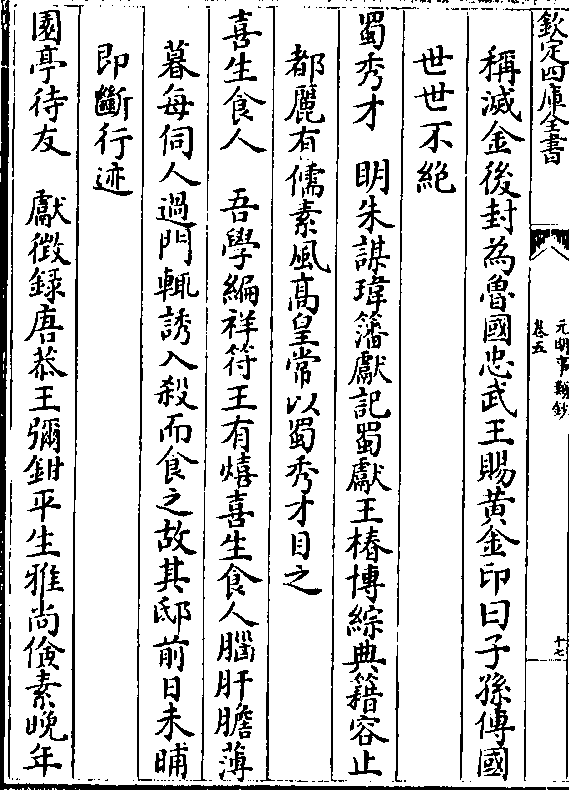 欽定四庫全書
元明事類鈔
卷五
十七
稱滅金後封為魯國忠武王賜黃金印曰子孫傳國
世世不絶
蜀秀才　明朱謀㙔藩獻記蜀獻王椿博綜典籍容止
都麗有儒素風髙皇常以蜀秀才目之
喜生食人　吾學編祥符王有熺喜生食人腦肝膽薄
暮每伺人過門輒誘入殺而食之故其邸前日未晡
即斷行迹
園亭待友　獻徵録唐恭王彌鉗平生雅尚儉素晚年